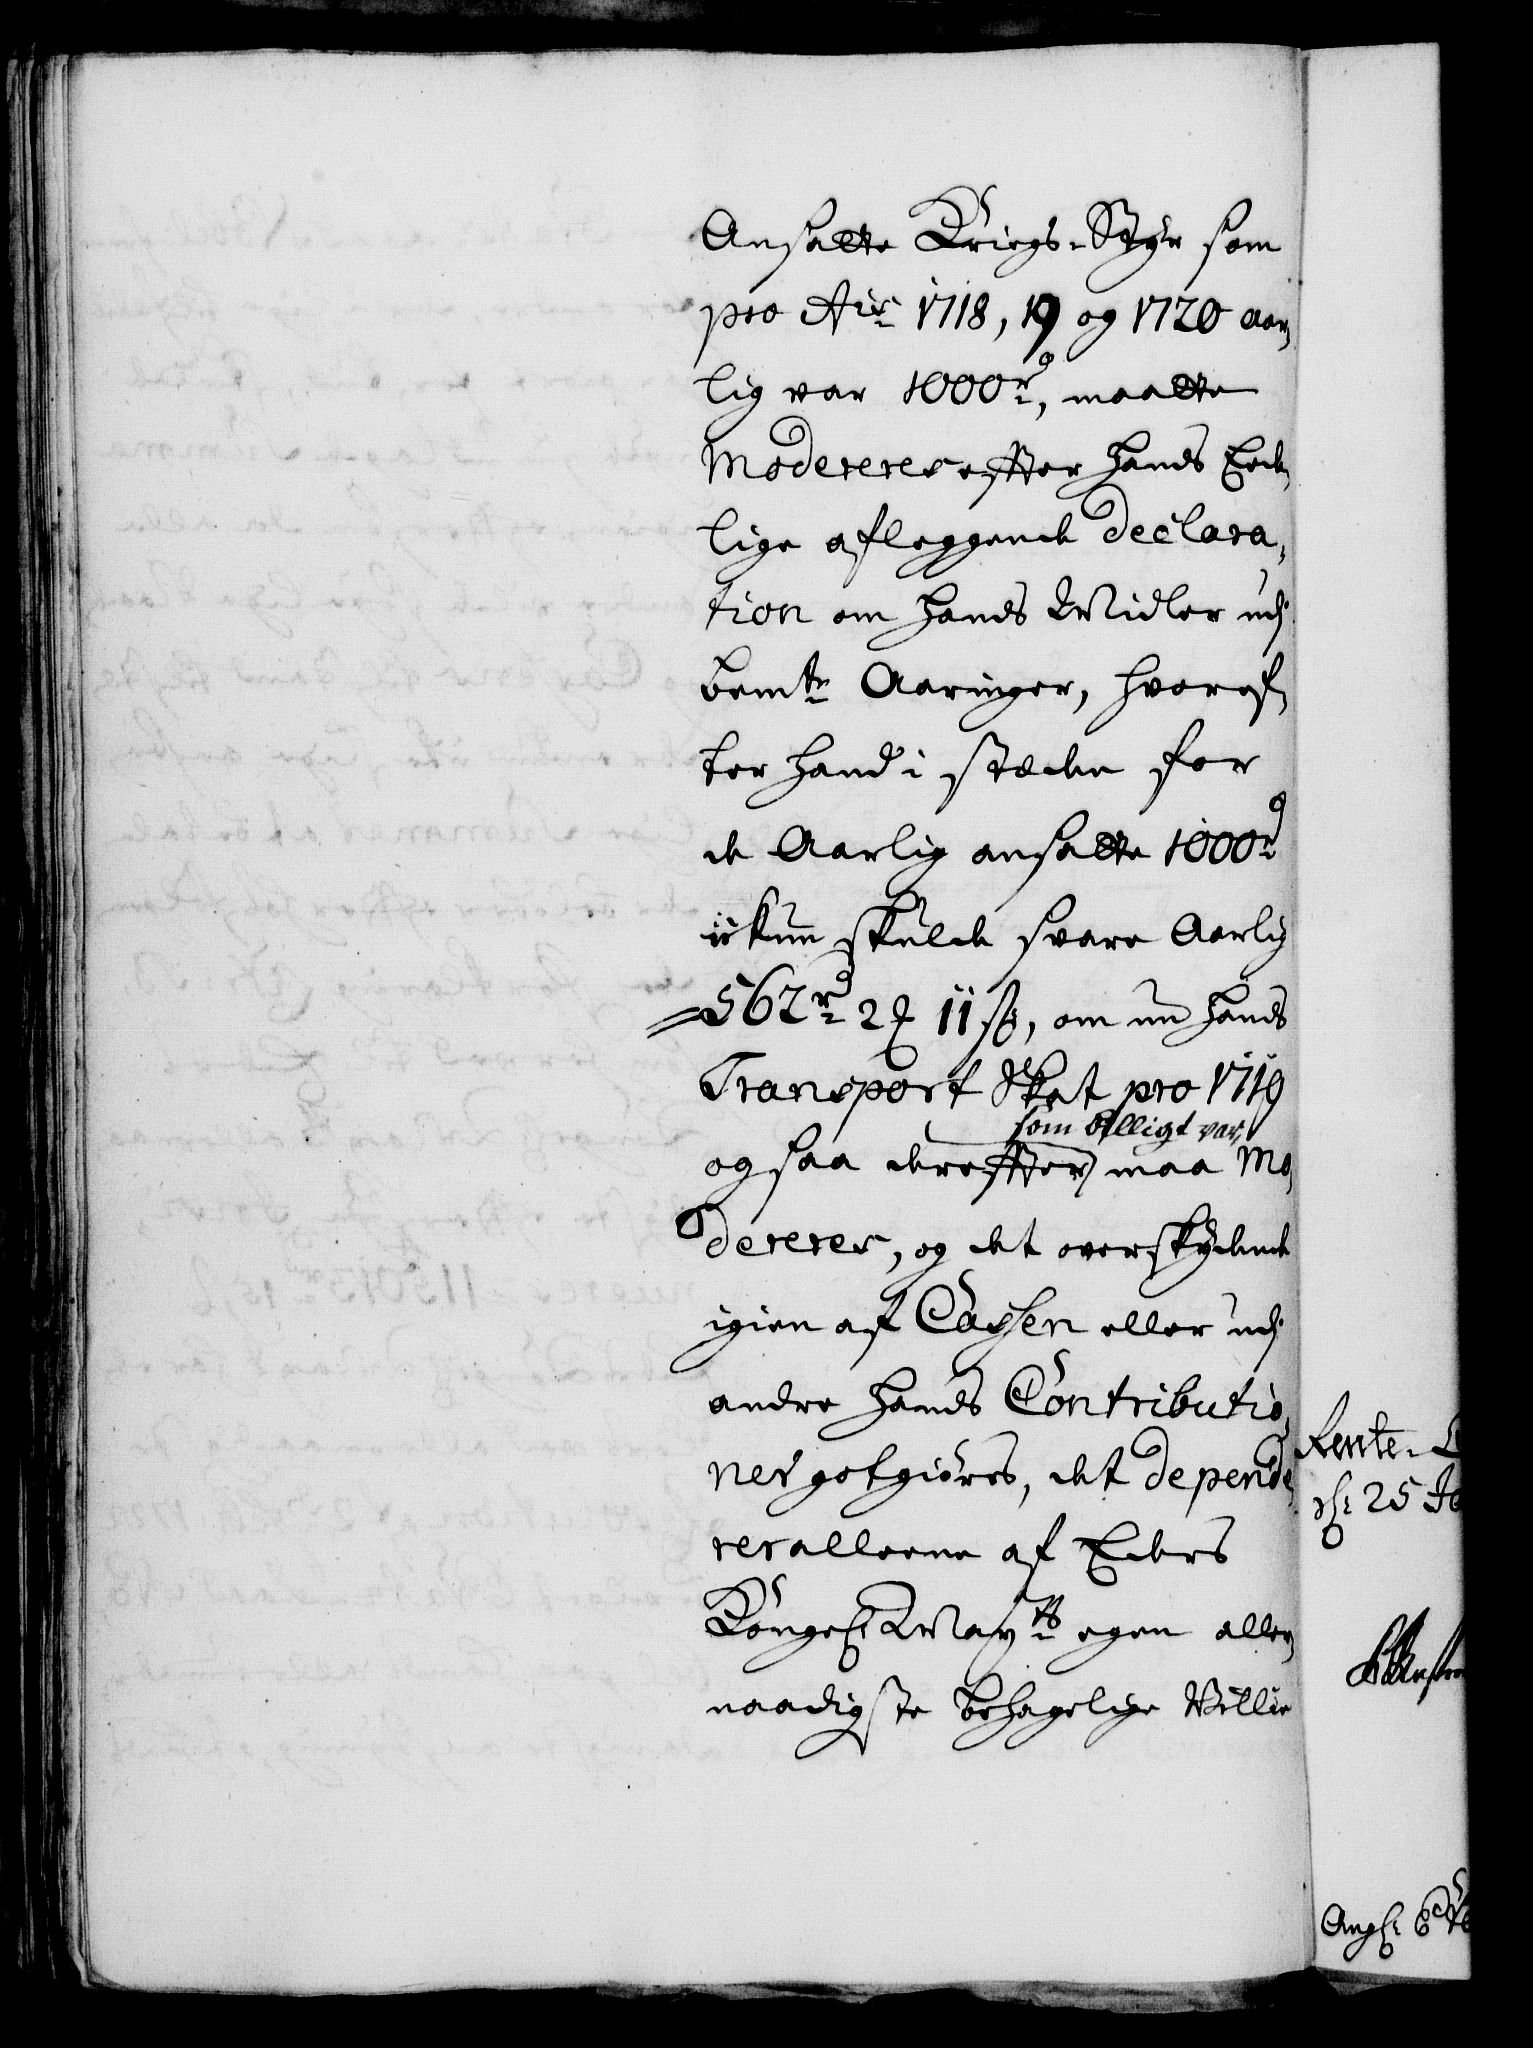 Ansatte Kriegs-Styr som
pro Ais 1718, 19 og 1720 aar,
lig var 1000 rd, maatte
Modereres effter hands Eed,
lige afleggende Declara,
tion om hands Midler udj
bemte Aaringer, hvoref,
ter hand i stæden for
de Aarlig ansatte 1000 rd
ickun skulde svare Aarlig
562 rd 2 ꝶ 11 ſß, om nu hands
Transport Skat pro 1719
som billigt var,
og saa dereffter maa Mo,
dereres, og det overskydende
igien af Cassen eller udj
andre hands Contributio,
ner gotgiöres, det depende,
rer alleene af Eders
Kongel Mayts egen aller,
naadigste behagelige Villie
Rente-
25
Angl